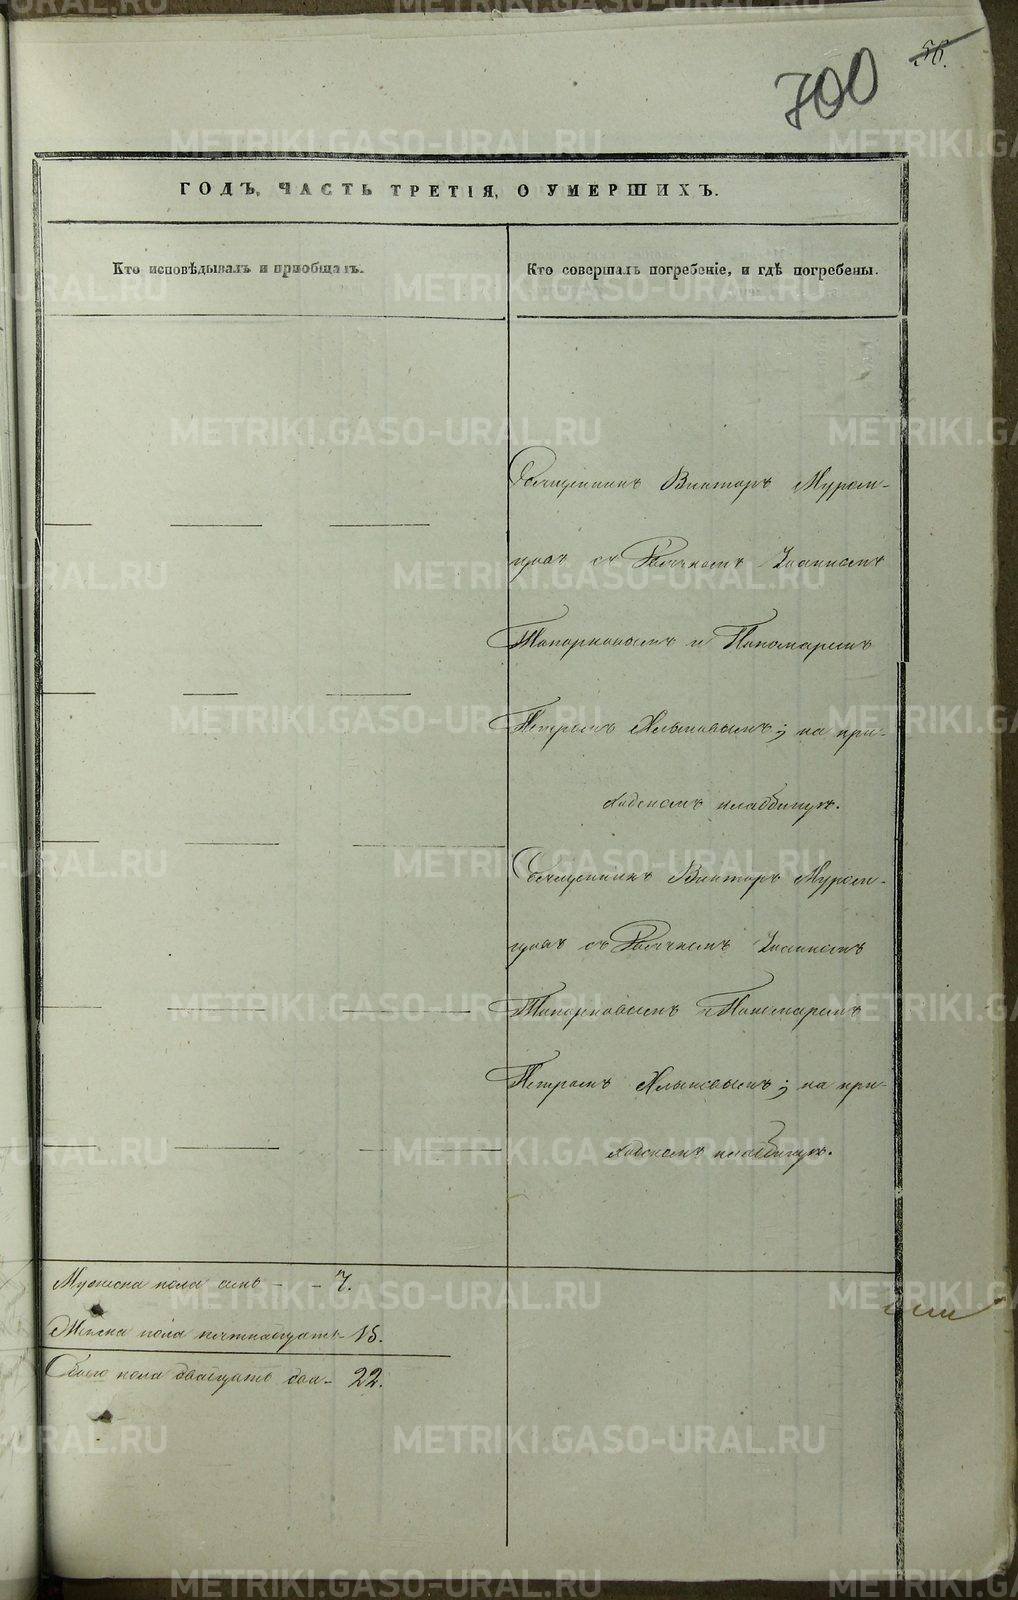 56.
700
ГОДЪ, ЧАСТЬ ТРЕТІЯ, О УМЕРШИХЪ.
Кто исповѣдывалъ и пріобщалъ.
Кто совершалъ погребеніе, и гдѣ погребены.
Священникъ Викторъ Муром-
цовъ съ Іоанномъ
Топорковымъ и Пономаремъ
Петромъ Хлыновымъ; на при-
ходскомъ кладбищѣ.
Священникъ Викторъ Муром-
цовъ съ Іоанномъ
Топорковымъ и Пономаремъ
Петромъ Хлыновымъ; на при-
ходскомъ кладбищѣ.
Мужеска пола семь - - 7.
Женска пола пятнадцать - 15.
Обоего пола двадцать два - 22.
METRIKI.GASO-URAL.RU